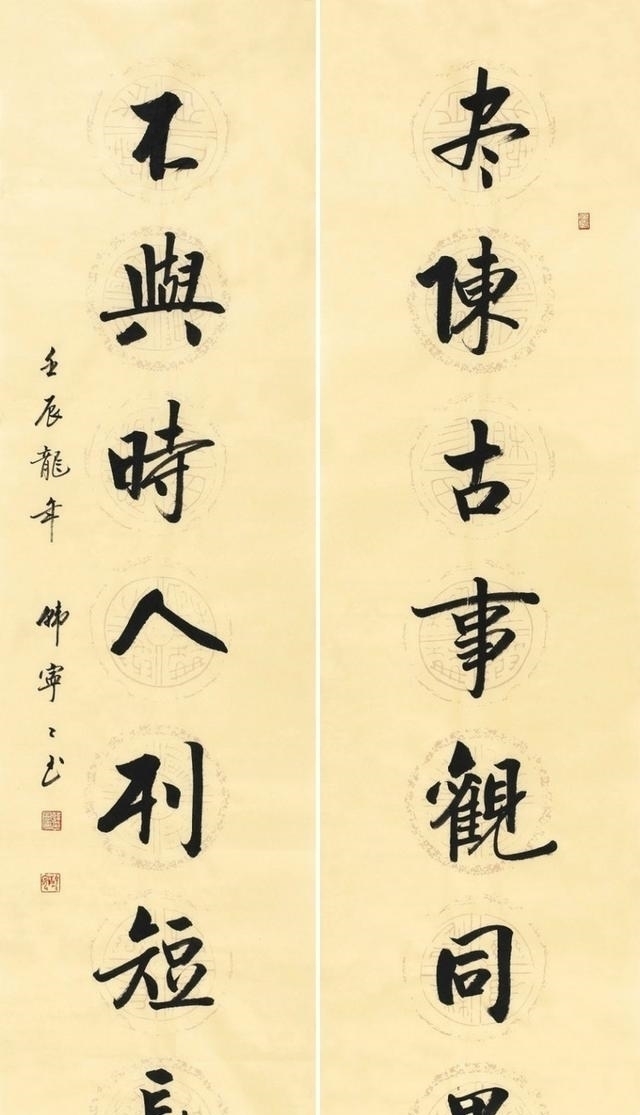 尽陳古事觀同
不與時人列短
壬辰龍年 韩寧〻书